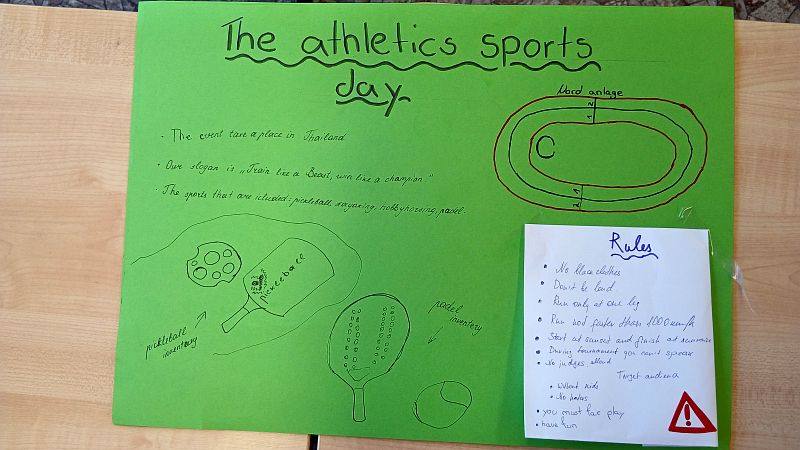 The athletics sports
day.
Nord anlage
2
1
C
1
2
• The event take a place in Thailand
• Our slogan is „Train like a Beast, win like a champion."
• The sports that are icluded: pickleball, kayaking, hobbyhorsing, padel.
Pickleball
pickleball
inventory
padel
inventory
Rules
• No black clothes
• Don't be loud
• Run only at one leg
• Run not faster than 1000 km/h
• Start at sunset and finish at sunraise
• During tournament you can't speak
• No judges allowed
Target audience
• Without kids
• No haters
• you must fair play
• have fun